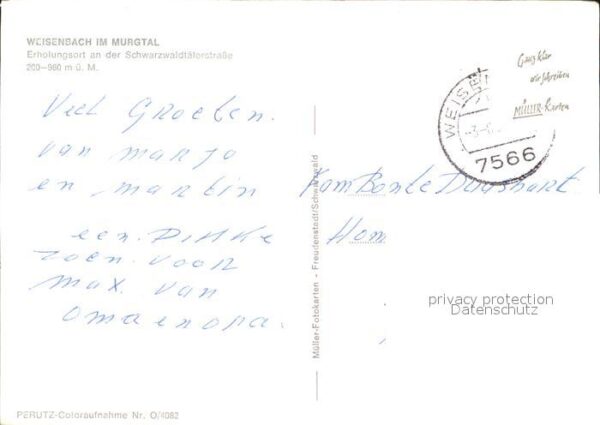 WEISENBACH IM MURGTAL
Erholungsort an der Schwarzwaldtälerstraße
200–960 m ü. M.
Veel Groeten.
van marja
en martin
een. DIKKE
zoen. voor
max. van
omaenopa.
PERUTZ-Coloraufnahme Nr. O/4082
Müller-Fotokarten - Freudenstadt/Schwarzwald
Ganz klar
wir schreiben
MÜLLER-Karten
WEISE
7566
Fam Bonte
Hom
privacy protection
Datenschutz